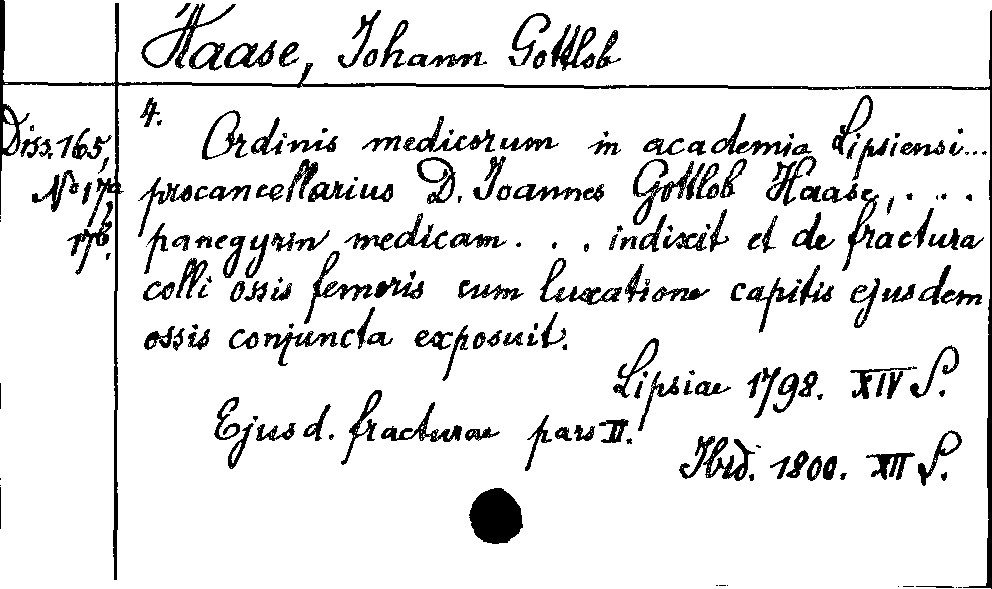 Haase, Johann Gottlob
4.
Diss. 165, Ordinis medicorum in academia Lipsiensi...
No 17a procancellarius D. Joannes Gottlob Haase, . . .
17b. panegyrin medicam . . . indixit et de fractura
colli ossis femoris cum luxatione capitis ejusdem
ossis conjuncta exposuit.
Lipsiae 1798. XIV S.
Ejusd. fracturae pars II.
Ibid. 1800. XII S.